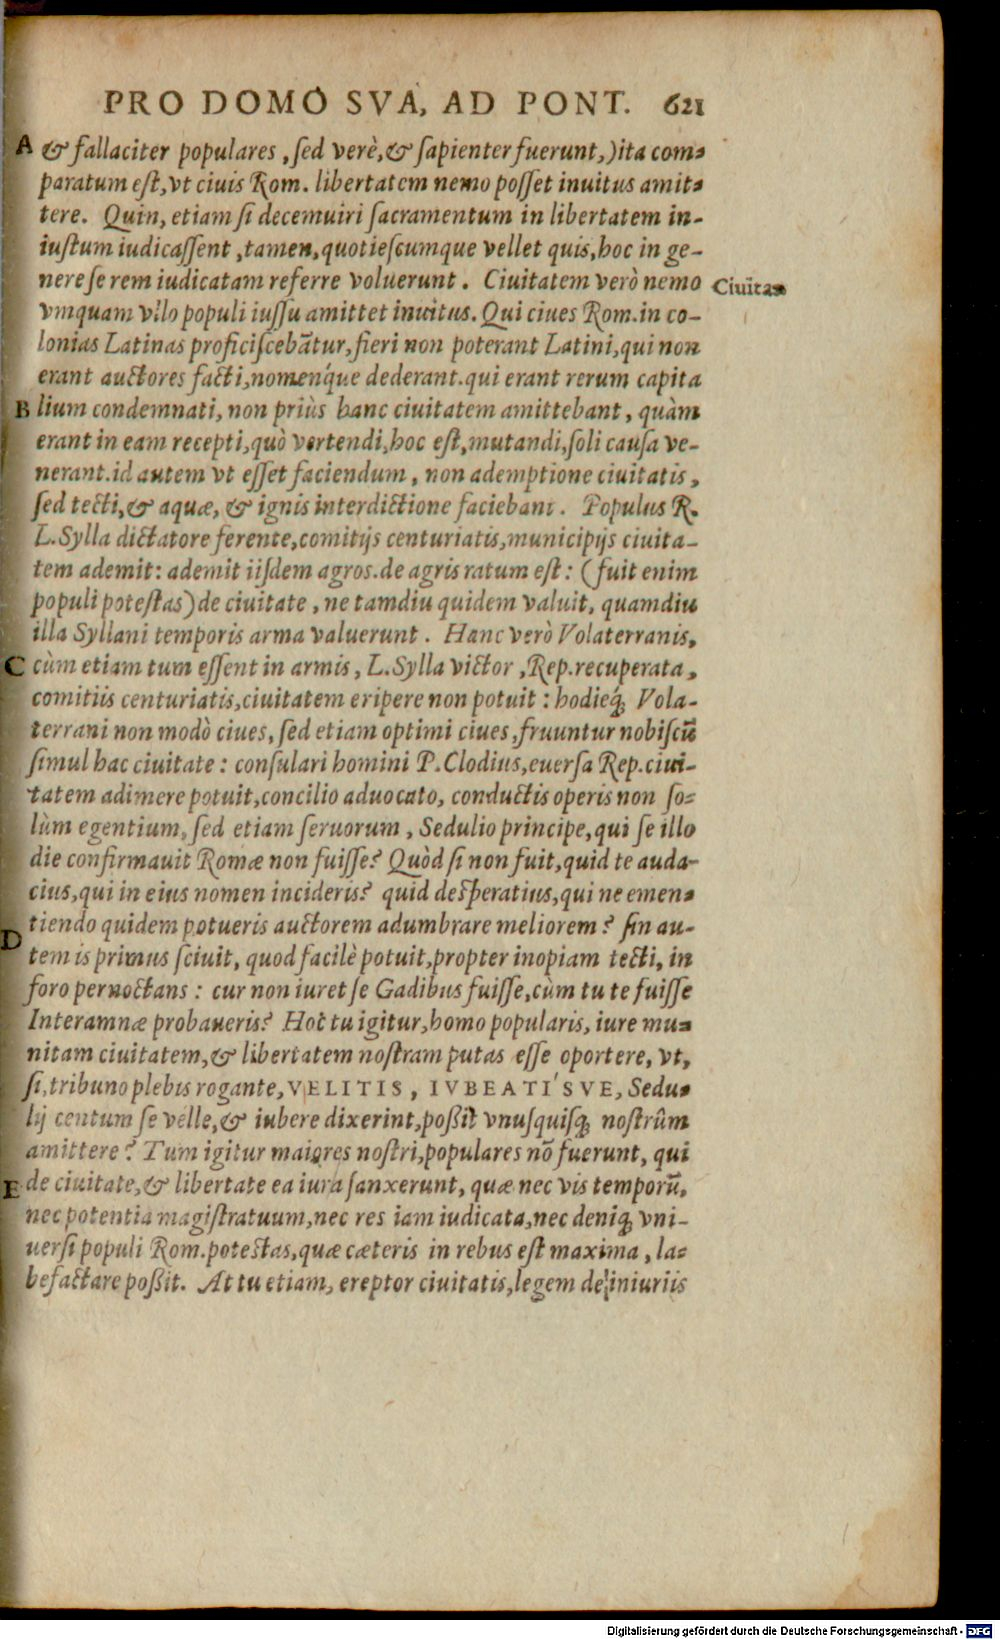 PRO DOMO SVA, AD PONT. 621
A & fallaciter populares, sed verè, & sapienter fuerunt,) ita com-
paratum est, vt ciuis Rom. libertatem nemo posset inuitus amit-
tere. Quin, etiam si decemuiri sacramentum in libertatem in-
iustum iudicassent, tamen, quotiescumque vellet quis, hoc in ge-
nere se rem iudicatam referre voluerunt. Ciuitatem verò nemo
Ciuitas
vmquam vllo populi iussu amittet inuitus. Qui ciues Rom. in co-
lonias Latinas proficiscebātur, fieri non poterant Latini, qui non
erant auctores facti, noménque dederant. qui erant rerum capita
B lium condemnati, non priùs hanc ciuitatem amittebant, quàm
erant in eam recepti, quò vertendi, hoc est, mutandi, soli causa ve-
nerant. id autem vt esset faciendum, non ademptione ciuitatis,
sed tecti, & aquæ, & ignis interdictione faciebant. Populus R.
L. Sylla dictatore ferente, comitijs centuriatis, municipijs ciuita-
tem ademit: ademit iisdem agros. de agris ratum est: (fuit enim
populi potestas) de ciuitate, ne tamdiu quidem valuit, quamdiu
illa Syllani temporis arma valuerunt. Hanc verò Volaterranis,
C cùm etiam tum essent in armis, L. Sylla victor, Rep. recuperata,
comitiis centuriatis, ciuitatem eripere non potuit: hodieq́; Vola-
terrani non modò ciues, sed etiam optimi ciues, fruuntur nobiscū
simul hac ciuitate: consulari homini P. Clodius, euersa Rep. ciui-
tatem adimere potuit, concilio aduocato, conductis operis non so-
lùm egentium, sed etiam seruorum, Sedulio principe, qui se illo
die confirmauit Romæ non fuisse? Quòd si non fuit, quid te auda-
cius, qui in eius nomen incideris? quid desperatius, qui ne emen-
tiendo quidem potueris auctorem adumbrare meliorem? sin au-
D tem is primus sciuit, quod facilè potuit, propter inopiam tecti, in
foro pernoctans: cur non iuret se Gadibus fuisse, cùm tu te fuisse
Interamnæ probaueris? Hoc tu igitur, homo popularis, iure mu-
nitam ciuitatem, & libertatem nostram putas esse oportere, vt,
si, tribuno plebis rogante, VELITIS, IVBEATI'SVE, Sedu-
lij centum se velle, & iubere dixerint, poßit vnusquisq; nostrûm
amittere? Tum igitur maiores nostri, populares nō fuerunt, qui
E de ciuitate, & libertate ea iura sanxerunt, quæ nec vis temporū,
nec potentia magistratuum, nec res iam iudicata, nec deniq; vni-
uersi populi Rom. potestas, quæ cæteris in rebus est maxima, la-
befactare poßit. At tu etiam, ereptor ciuitatis, legem de iniuriis
Digitalisierung gefördert durch die Deutsche Forschungsgemeinschaft - DFG